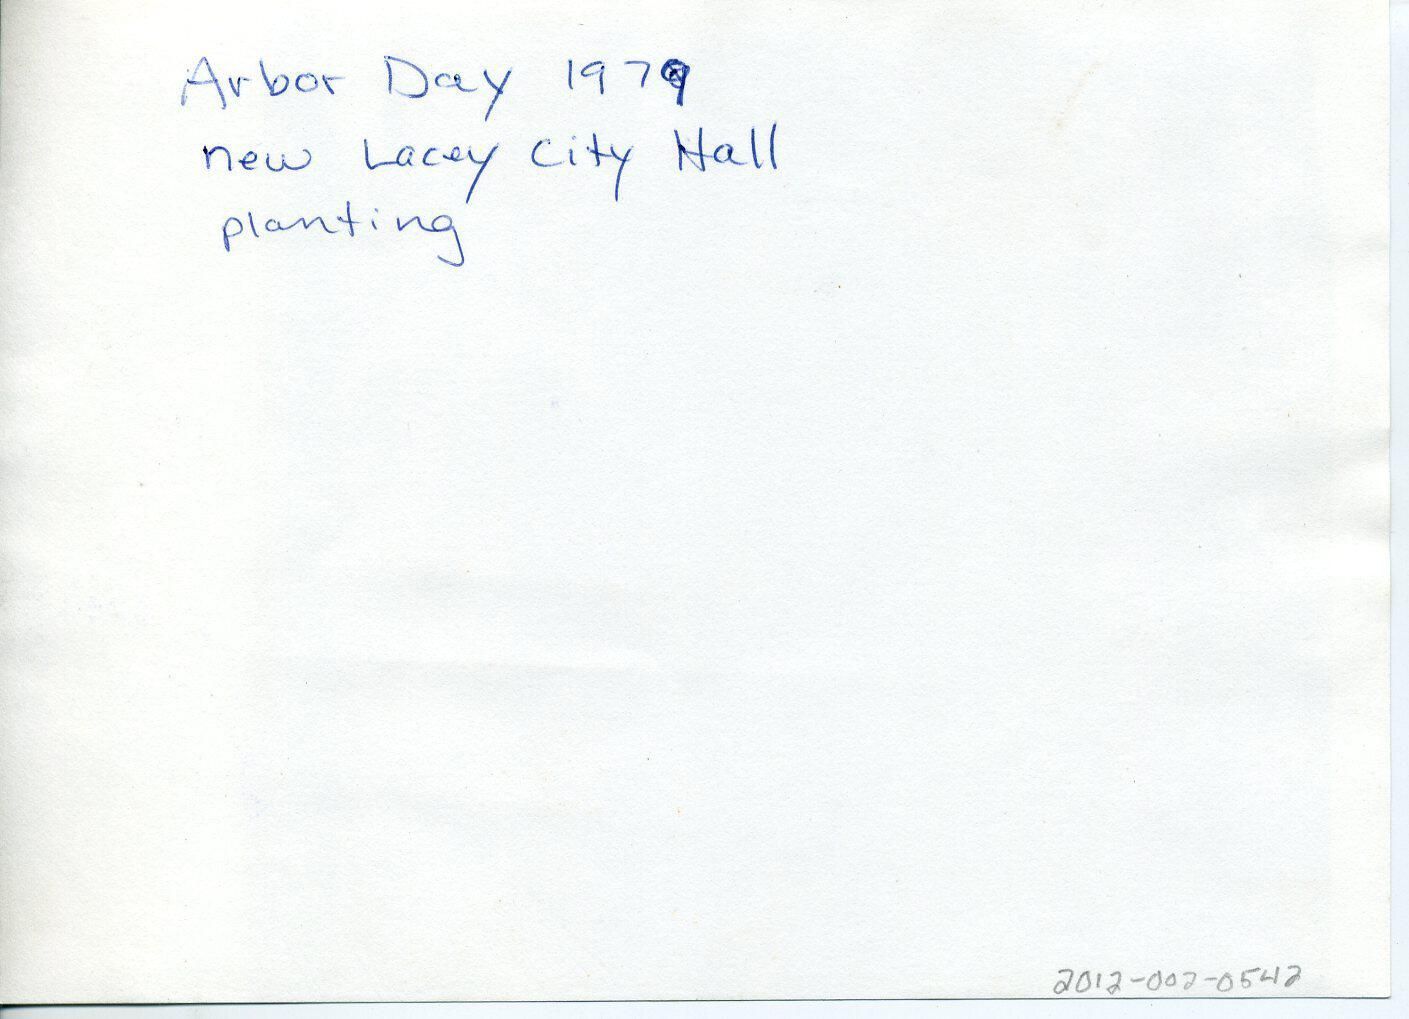 Arbor Day 1979
new Lacey City Hall
planting
2012-002-0542